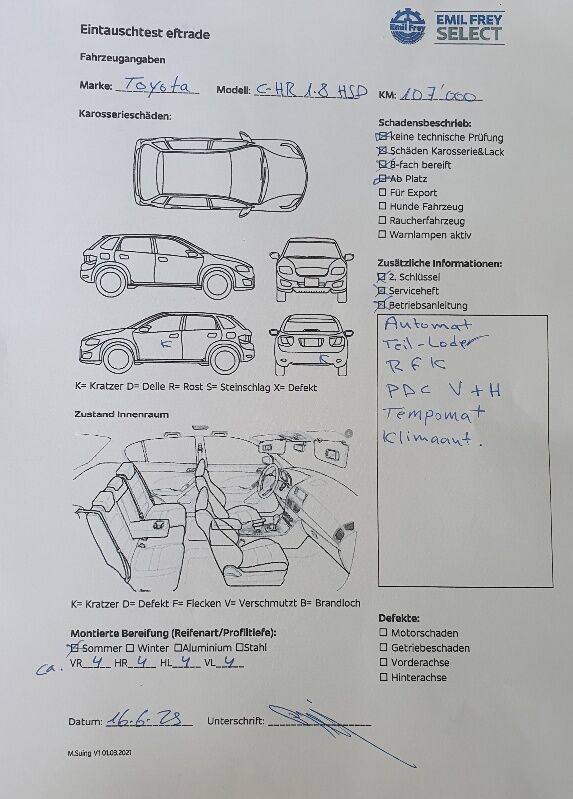 Eintauschtest eftrade
Emil Frey
EMIL FREY
SELECT
Fahrzeugangaben
Marke: Toyota Modell: C-HR 1.8 HSD KM: 107'000
Karosserieschäden:
Schadensbeschrieb:
keine technische Prüfung
Schäden Karosserie&Lack
8-fach bereift
Ab Platz
Für Export
Hunde Fahrzeug
Raucherfahrzeug
Warnlampen aktiv
Zusätzliche Informationen:
2. Schlüssel
Serviceheft
Betriebsanleitung
K
K
K= Kratzer D= Delle R= Rost S= Steinschlag X= Defekt
Automat
Teil-Leder
RFK
PDC V+H
Tempomat
Klimaaut.
Zustand Innenraum
K= Kratzer D= Defekt F= Flecken V= Verschmutzt B= Brandloch
Montierte Bereifung (Reifenart/Profiltiefe):
Sommer Winter Aluminium Stahl
ca. VR 4 HR 4 HL 4 VL 4
Defekte:
Motorschaden
Getriebeschaden
Vorderachse
Hinterachse
Datum: 16.6.23 Unterschrift:
M.Suing V1 01.03.2021